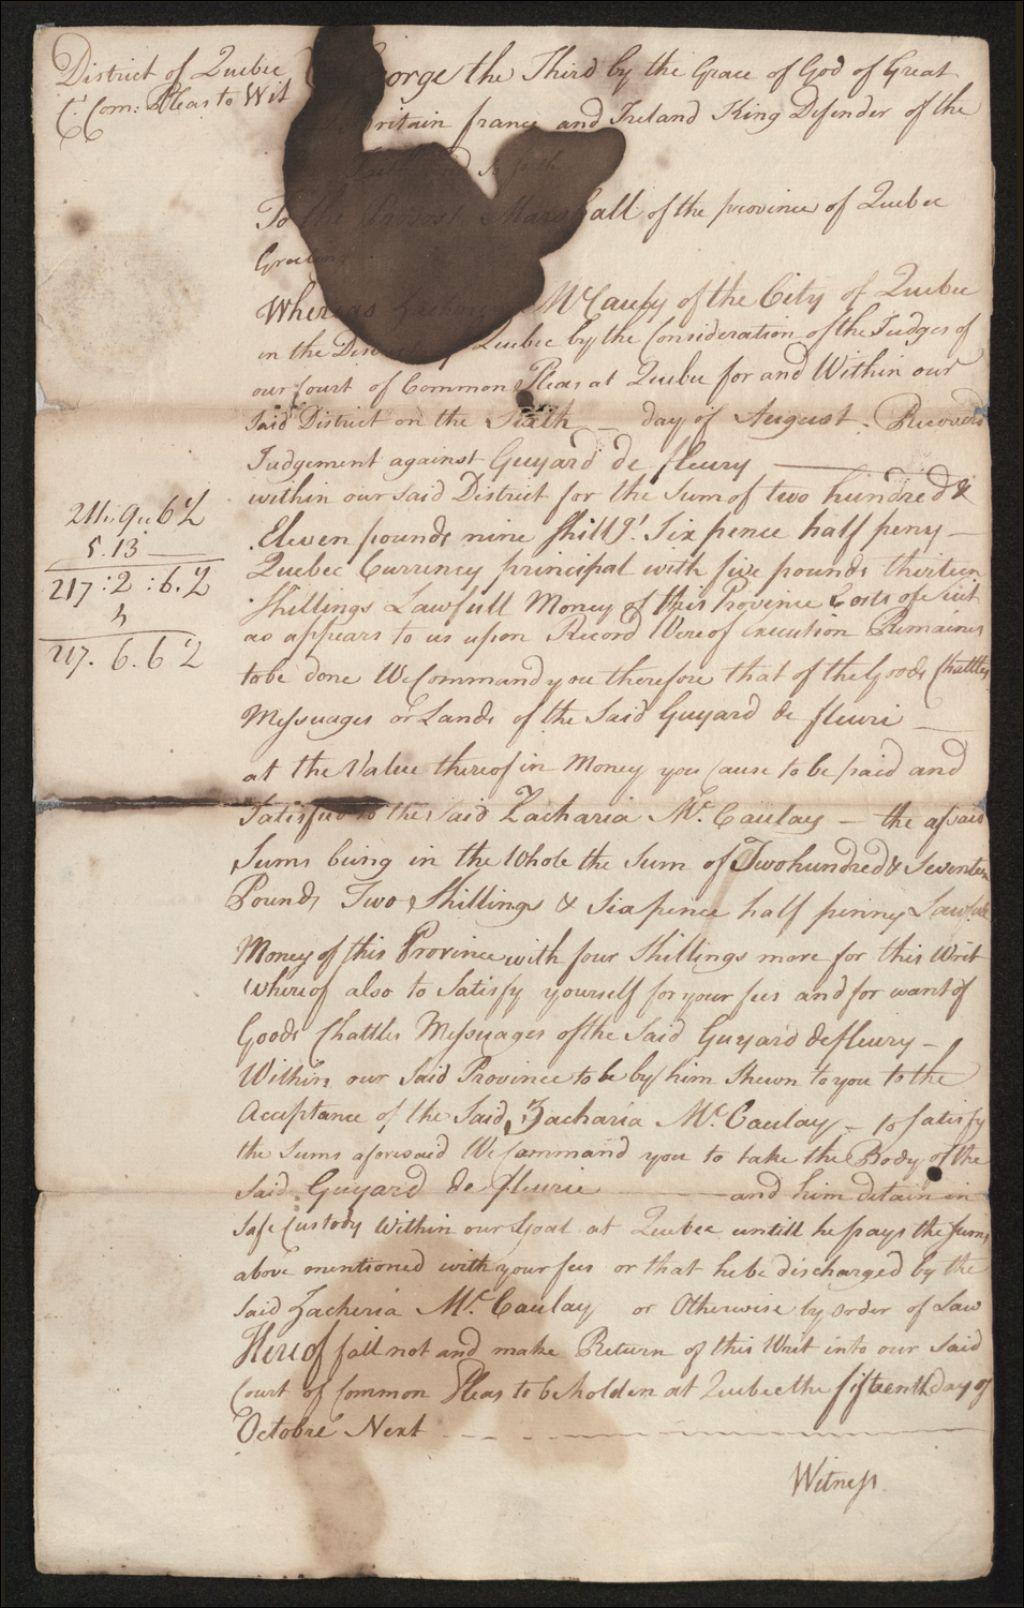 District of Quebec
Ct. Com: Pleas to Wit
George the Third by the Grace of God of Great
Britain france and Ireland King Defender of the
Faith and so forth
To the Provost Marshall of the province of Quebec
Greeting
Whereas McCauly of the City of Quebec
in the District of Quebec by the Consideration of the Judges of
our Court of Common Pleas at Quebec for and Within our
Said District on the Sixth — day of August Recoverd
Judgement against Guyard de fleury
within our said District for the Sum of two hundred &
Eleven pounds nine shillgs. Six pence half peny —
Quebec Currency principal with five pounds thirteen
Shillings Lawfull Money of this Province Costs of Suit
as appears to us upon Record Wereof Execution Remaines
to be done We Command you therefore that of the Goods Chattles
Messuages or Lands of the Said Guyard de fleuri —
at the Value thereof in Money you Cause to be paid and
Satisfied to the Said Zacharia Mc. Caulay — the afsaid
Sums being in the Whole the Sum of Two hundred & Seventeen
Pounds Two Shillings & Six pence half penny Lawfull
Money of this Province with four Shillings more for this Writ
whereof also to Satisfy yourself for your fees and for want of
Goods Chattles Messuages of the Said Guyard de fleury —
Within our Said Province to be by him Shewn to you to the
Acceptance of the Said Zacharia Mc. Caulay — to Satisfy
the Sums aforesaid We Command you to take the Body of the
Said Guyard de fleurie — and him detain in
Safe Custody Within our Goal at Quebec untill he pays the Sums
above mentioned with your fees or that he be discharged by the
Said Zacheria Mc. Caulay or Otherwise by order of Law
Hereof fail not and make Return of this Writ into our Said
Court of Common Pleas to be holden at Quebec the fifteenth day of
Octobre Next
Witness
211 " 9 " 6 ½
5. 13 —
217 : 2 : 6. ½
4
217. 6. 6 ½